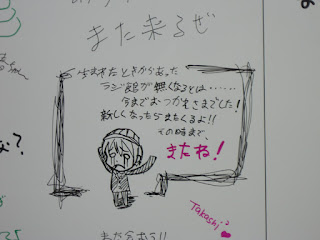 また来るぜ
生まれたときからあった
ラジ館が無くなるとは……
今までおつかれさまでした！
新しくなったらまたくるよ!!
その時まで、
またね！
Takashi
な？